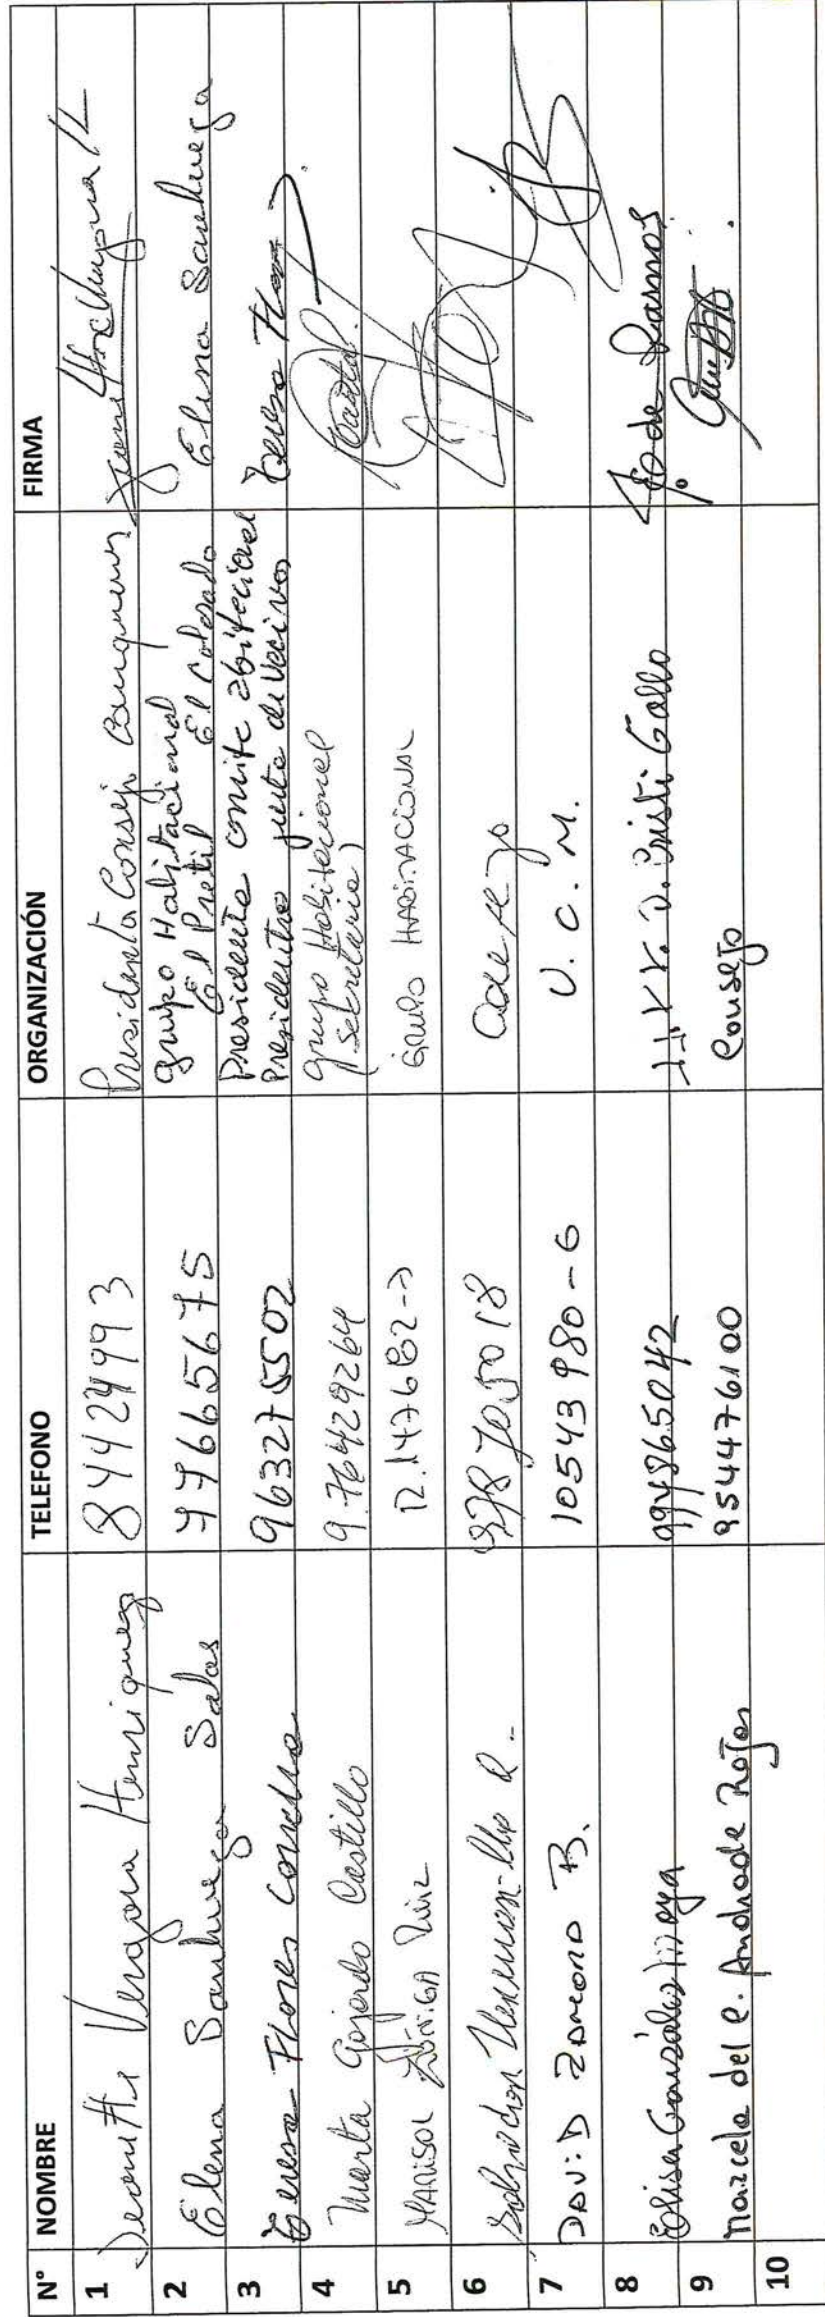 N° NOMBRE TELEFONO ORGANIZACIÓN FIRMA
1 Jeanette Vergara Henriquez 84424993 Presidenta Consejo Cauquenes
2 Elena Sanhueza Salas 77665675 grupo Habitacional El Pretil El Colorado Elena Sanhueza
3 Teresa Flores 963275502 Presidente comite abitacional Presidentra junta de Vecinos Teresa Flores
4 Marta Gajardo Castillo 976429264 grupo Habitacional (secretaria)
5 MARISOL ZÚÑIGA Ruiz 12.147682-7 GRUPO HABITACIONAL
6 Salvador
7 DAViD ZAMORA B. 10543980-6 U. C. M.
8 Elisa González Moya 994865042 JJ.VV. V. Cristi Gallo
9 Marcela del C. Andrade Rojas 954476100 Consejo
10